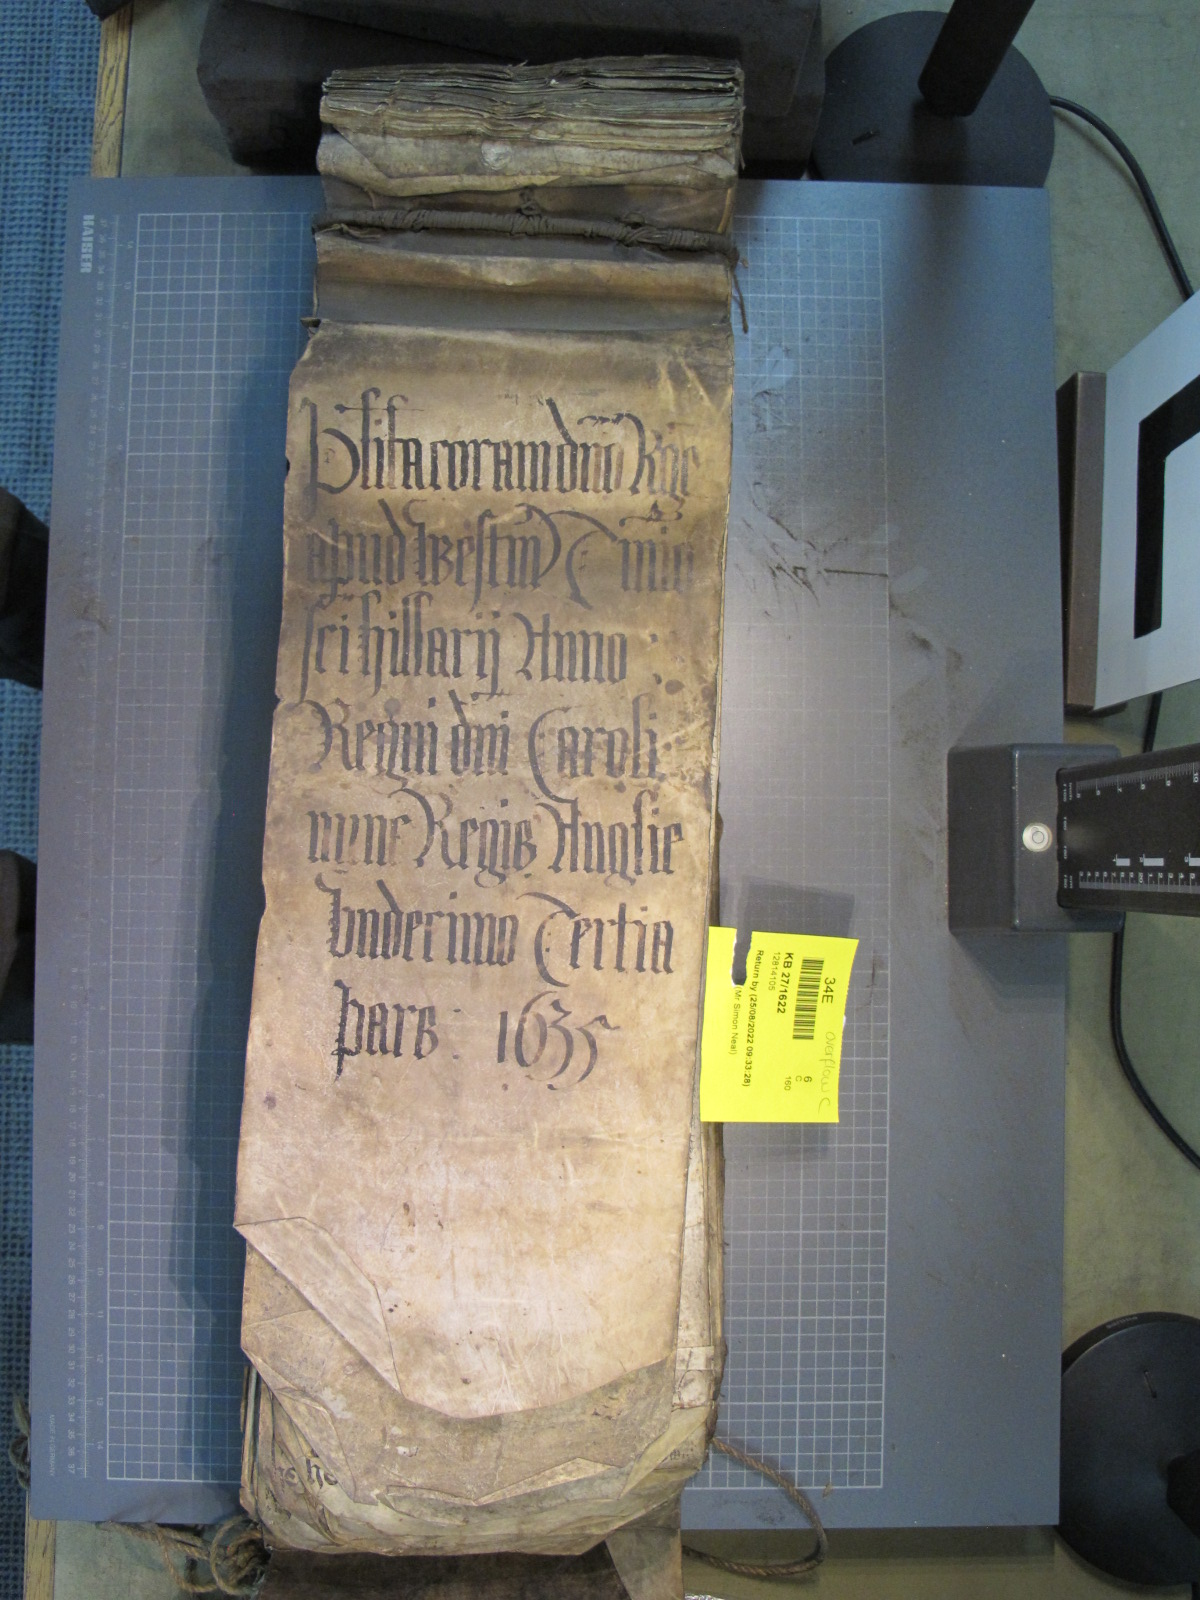 Plita coram dno Rege
apud Westm Tmio
sci hillarij Anno :
Regni dni Caroli
nunc Regis Anglie
Undecimo Tertia
pars : 1635
34E
overflow C
KB 27/1622
12814105
Return by (25/08/2022 09:33:28)
(Mr Simon Neal)
6
C
160
HAIGER
he